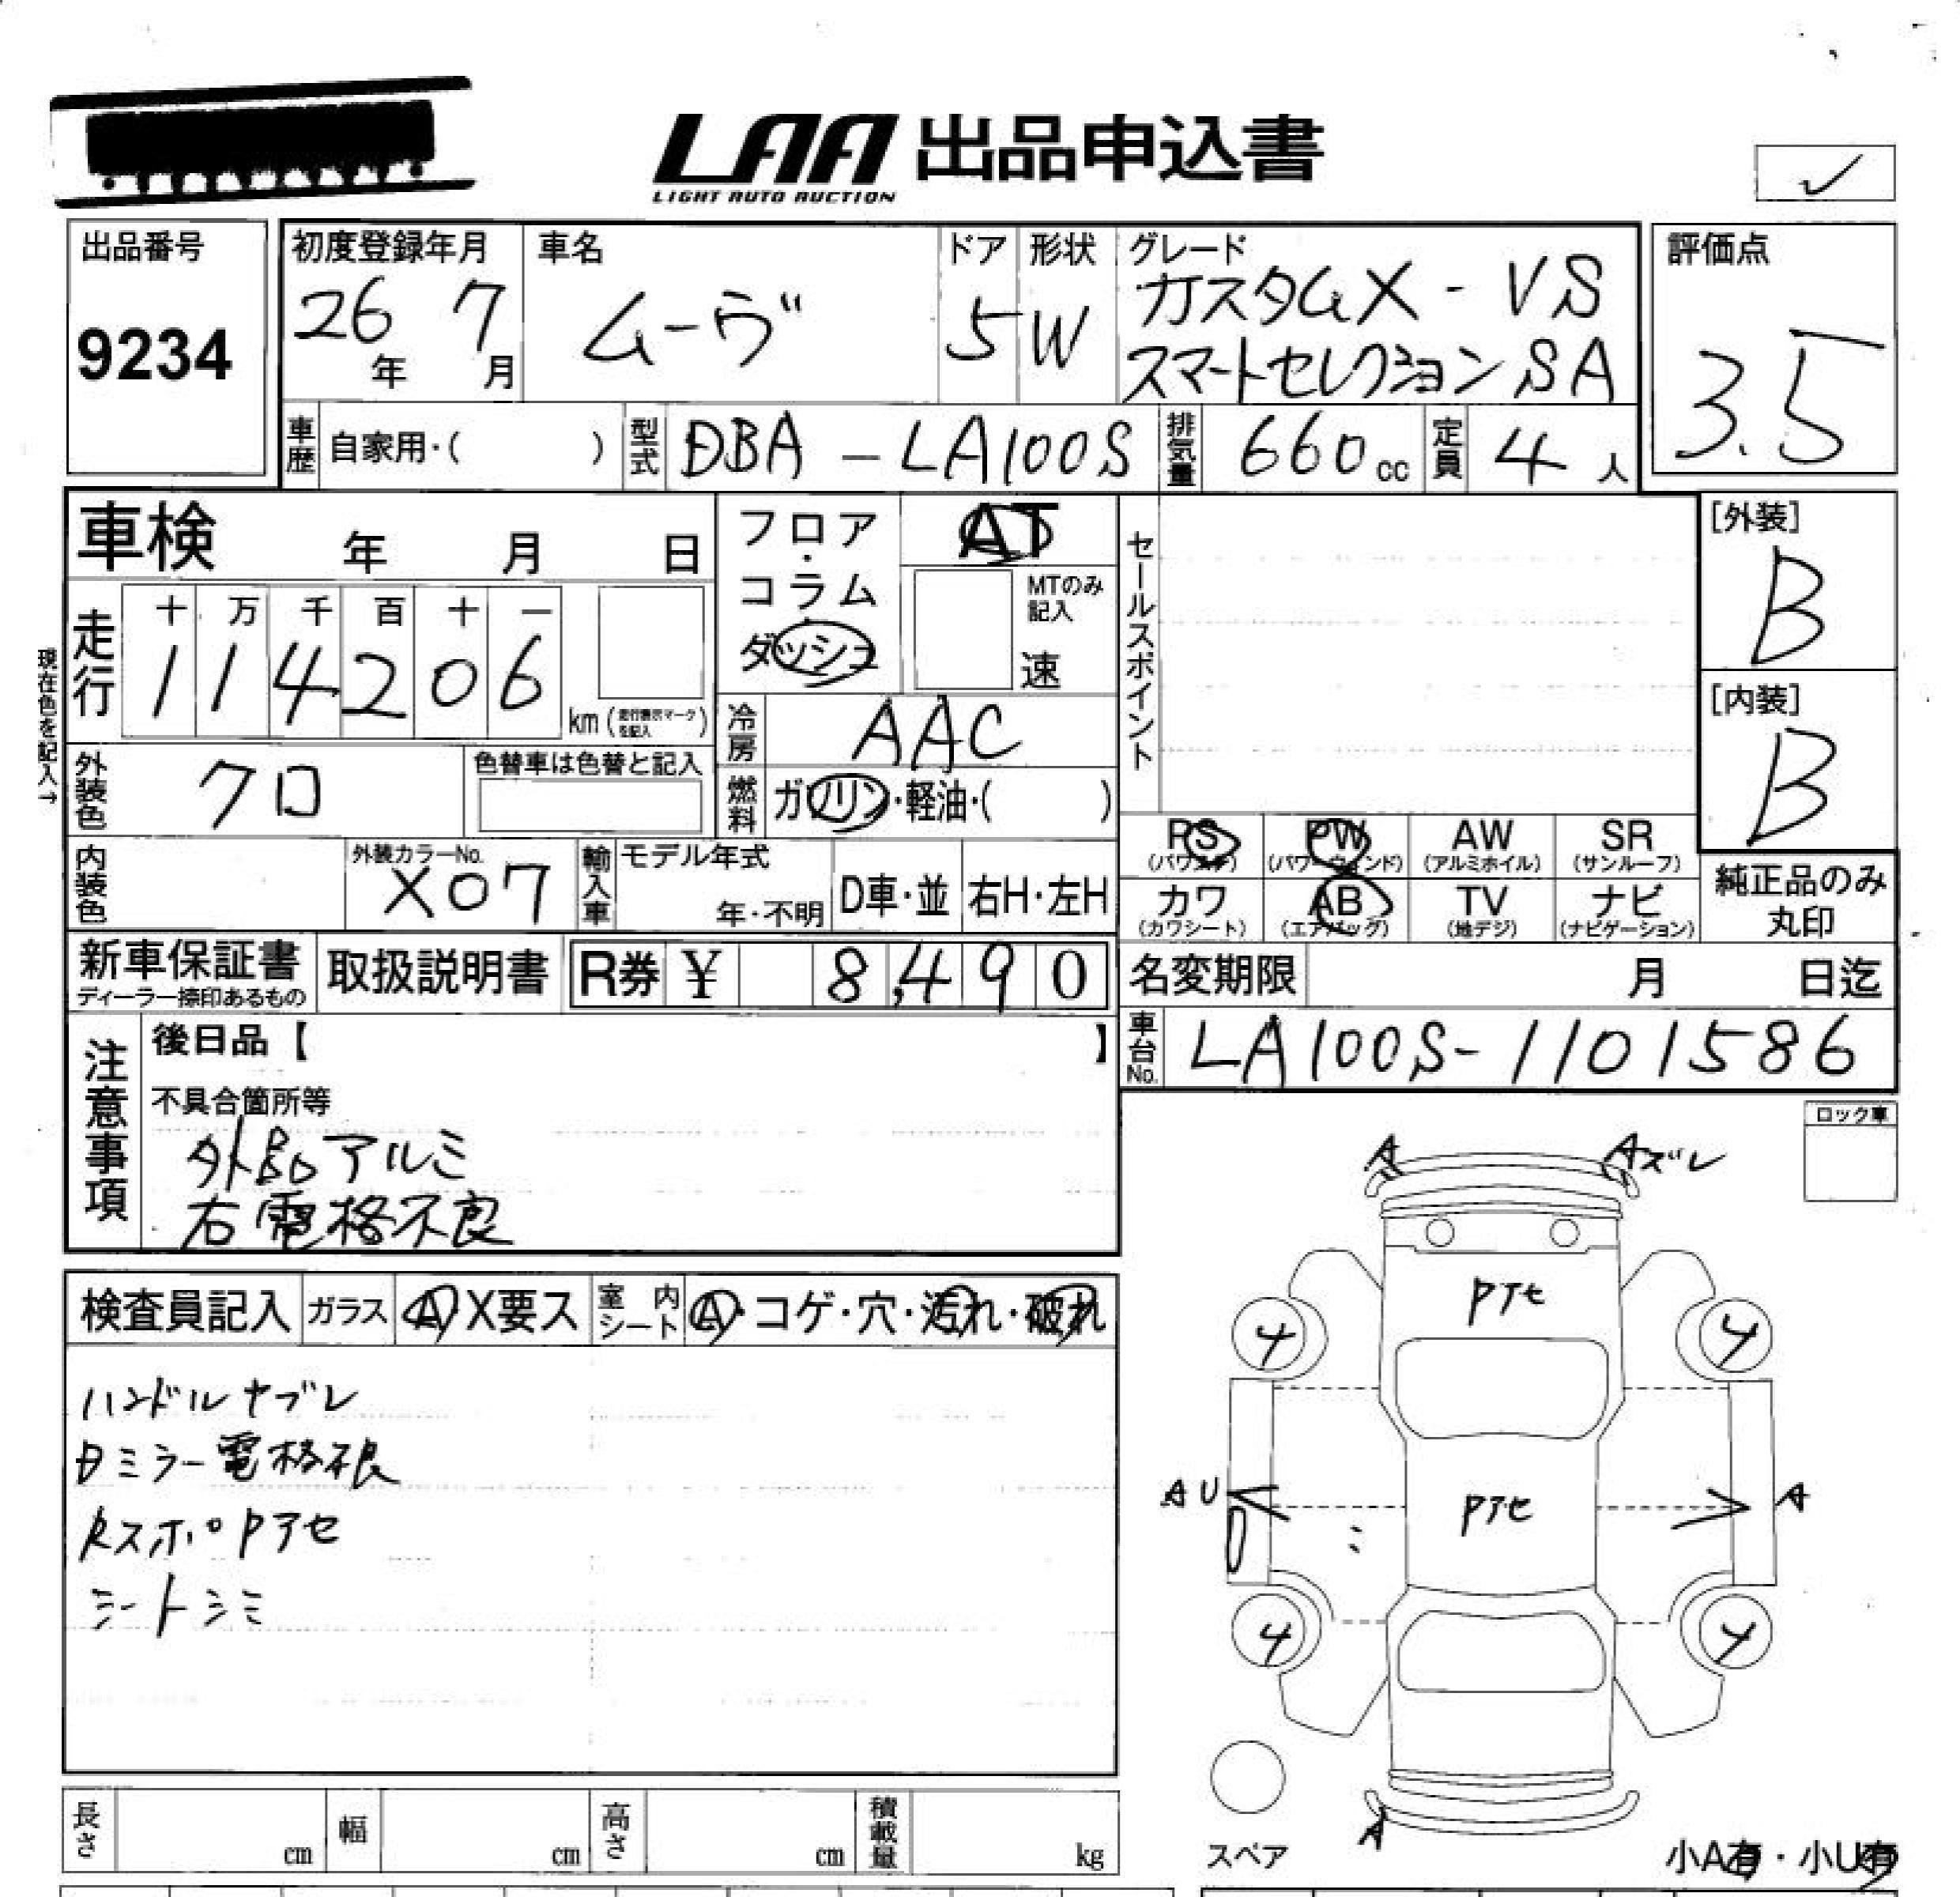 LAA 出品申込書
LIGHT AUTO AUCTION
✓
出品番号
9234
初度登録年月
26年 7月
車名
ムーヴ
ドア
5
形状
W
グレード
カスタムX-VS
スマートセレクションSA
評価点
3.5
車歴 自家用・( )
型式 DBA-LA100S
排気量 660cc
定員 4人
車検 年 月 日
フロア・コラム ダッシュ
AT
MTのみ記入
速
セールスポイント
[外装]
B
[内装]
B
現在色を記入→
走行
十 万 千 百 十 一
1 1 4 2 0 6 km (走行表示マークを記入)
冷房 AAC
外装色 クロ
色替車は色替と記入
燃料 ガソリン・軽油・( )
内装色
外装カラーNo.
X07
輸入車 モデル年式
年・不明
D車・並 右H・左H
PS (パワステ)
PW (パワーウィンド)
AW (アルミホイル)
SR (サンルーフ)
カワ (カワシート)
AB (エアバッグ)
TV (地デジ)
ナビ (ナビゲーション)
純正品のみ
丸印
新車保証書
ディーラー捺印あるもの
取扱説明書
R券 ¥ 8,490
名変期限 月 日迄
車台No. LA100S-1101586
注意事項
後日品【 】
不具合箇所等
外品アルミ
右電格不良
ロック車
検査員記入 ガラス A X要ス 室内シート A・コゲ・穴・汚れ・破れ
ハンドルヤブレ
ミラー電格不良
スポPアセ
シートシミ
A
Aズレ
Pアセ
4
4
AU
Pアセ
A
4
4
A
スペア
小A有・小U有
長さ cm 幅 cm 高さ cm 積載量 kg